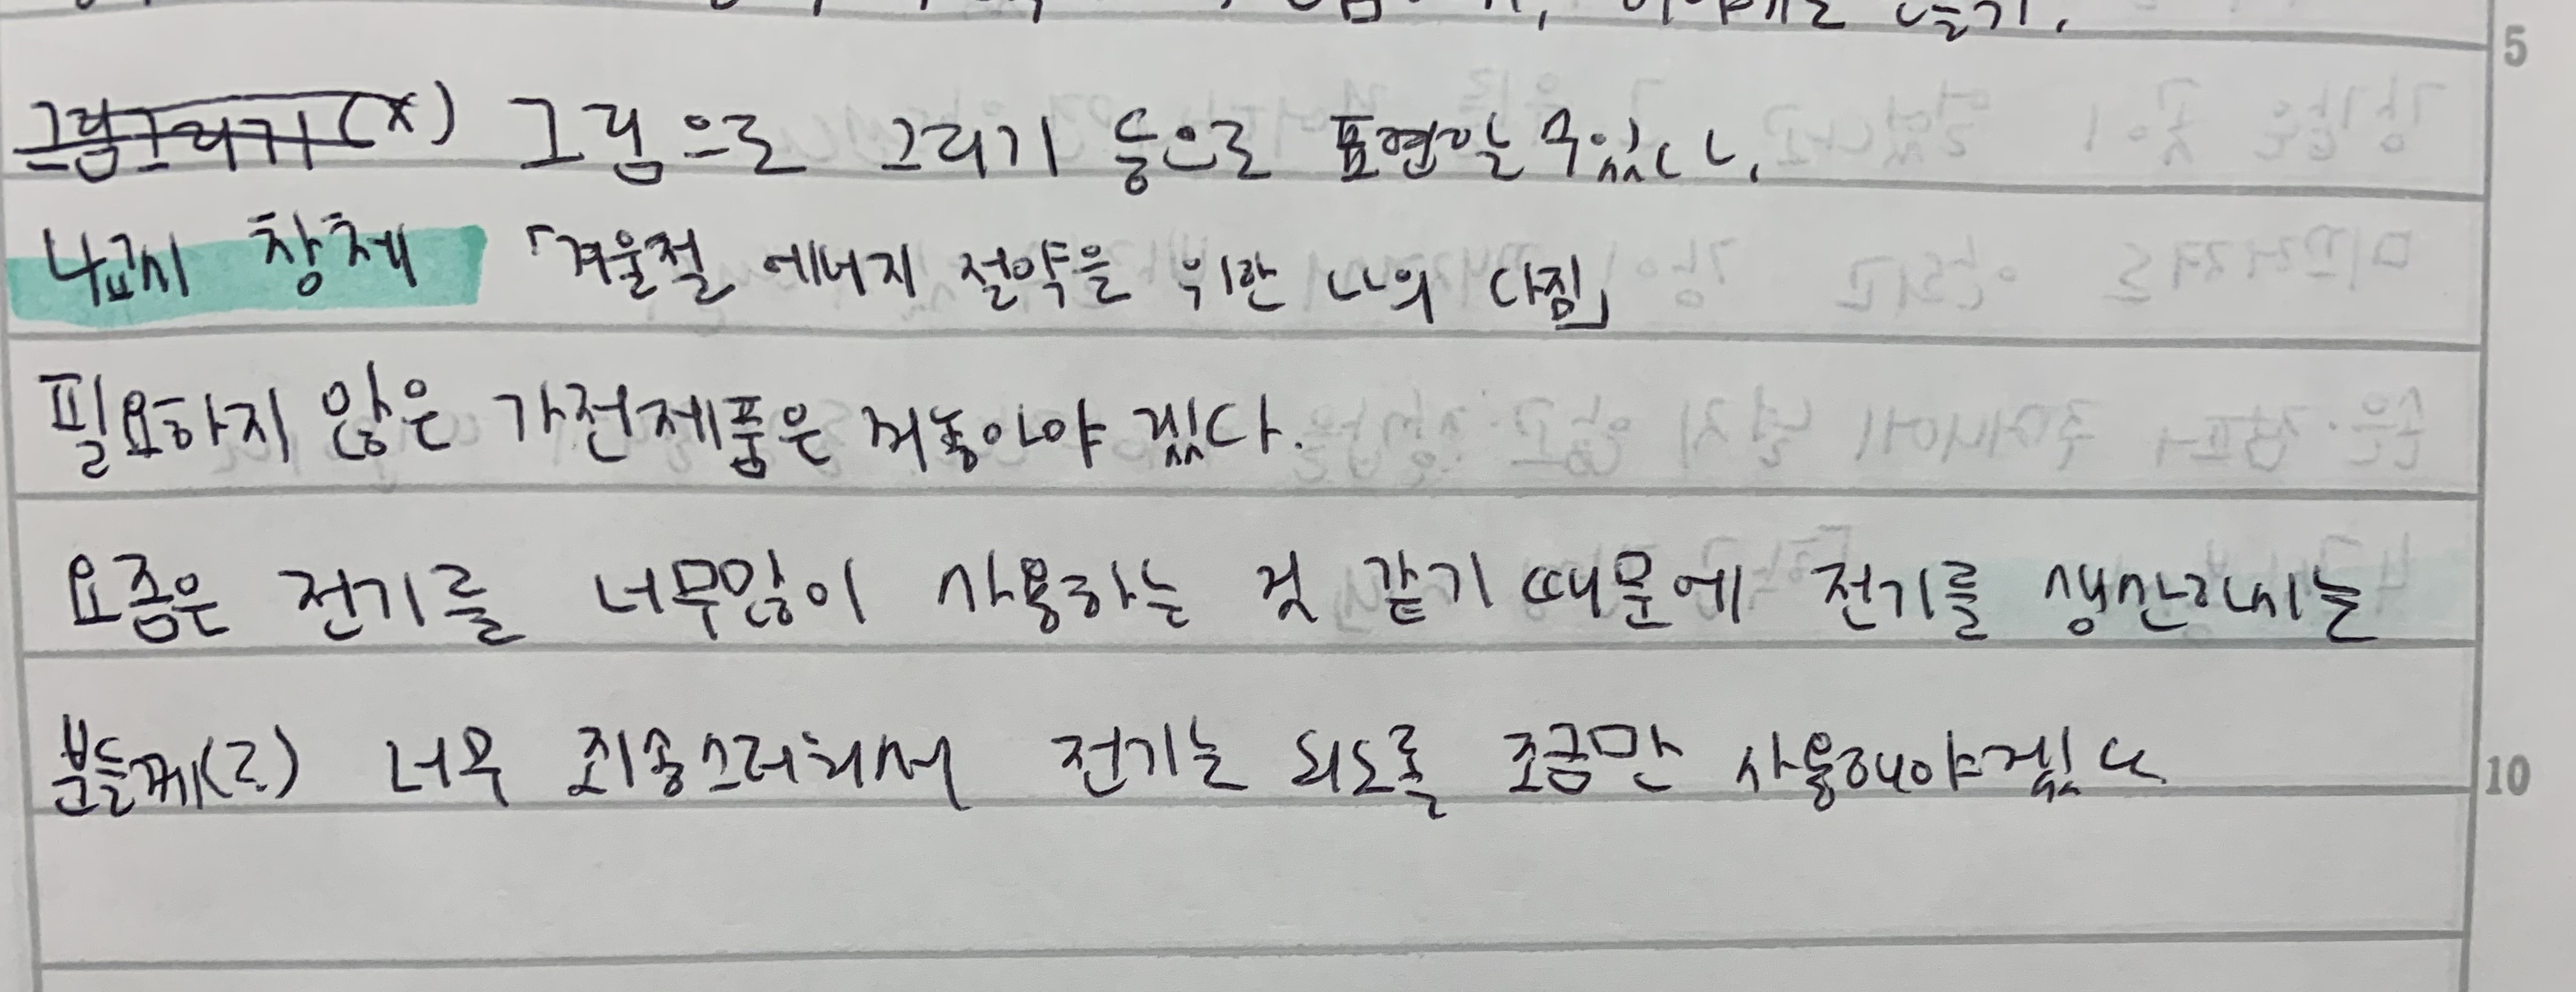 그림그리기(x) 그림으로 그리기 등으로 표현할 수있다.
4교시 창체 「겨울철 에너지 절약을 위한 나의 다짐」
필요하지 않은 가전제품은 꺼놓아야 겠다.
요즘은 전기를 너무많이 사용하는 것 같기 때문에 전기를 생산해내는
분들께(?) 너무 죄송스러워서 전기는 되도록 조금만 사용해야겠다
5
10